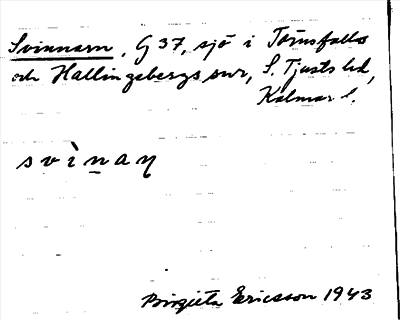 Svinnarn, G 37, sjö i Törnsfalls
och Hallingebergs snr, S. Tjusts hd,
Kalmar l.
s v ì n a ŋ
Birgitta Ericsson 1943